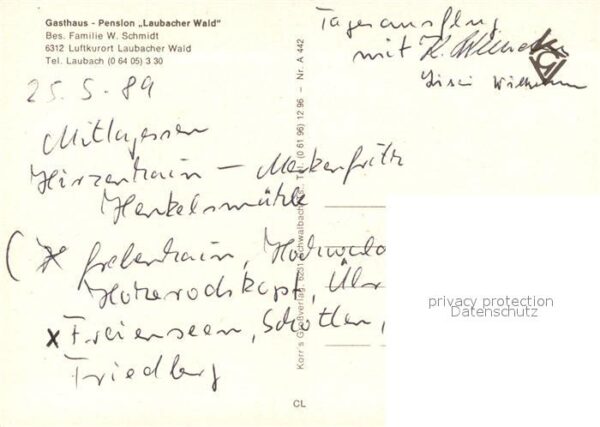 Gasthaus - Pension „Laubacher Wald"
Bes. Familie W. Schmidt
6312 Luftkurort Laubacher Wald
Tel. Laubach (0 64 05) 3 30
Tagesausflug
mit K.
Wilhelm
25. 5. 89
Mittagessen
Hirzenhain – Merkenfritz
Henkelsmühle
( x Grebenhain, Hochwald
Hoherodskopf, Ulr
x Freienseen, Schotten,
Friedberg
Korr's Großverlag, 6231 Schwalbach/Ts. Tel. (0 61 96) 12 96 – Nr. A 442
CL
privacy protection
Datenschutz